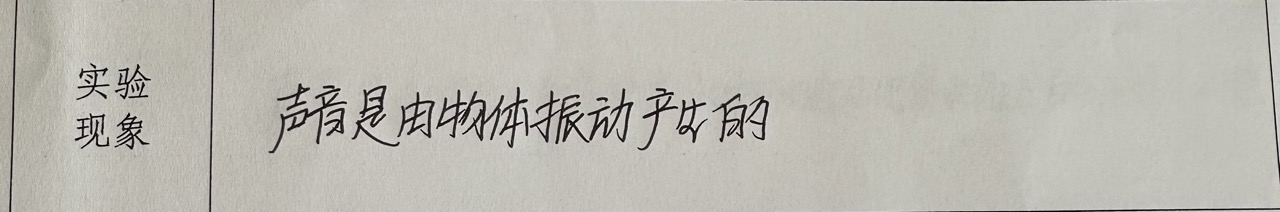 实验
现象
声音是由物体振动产生的